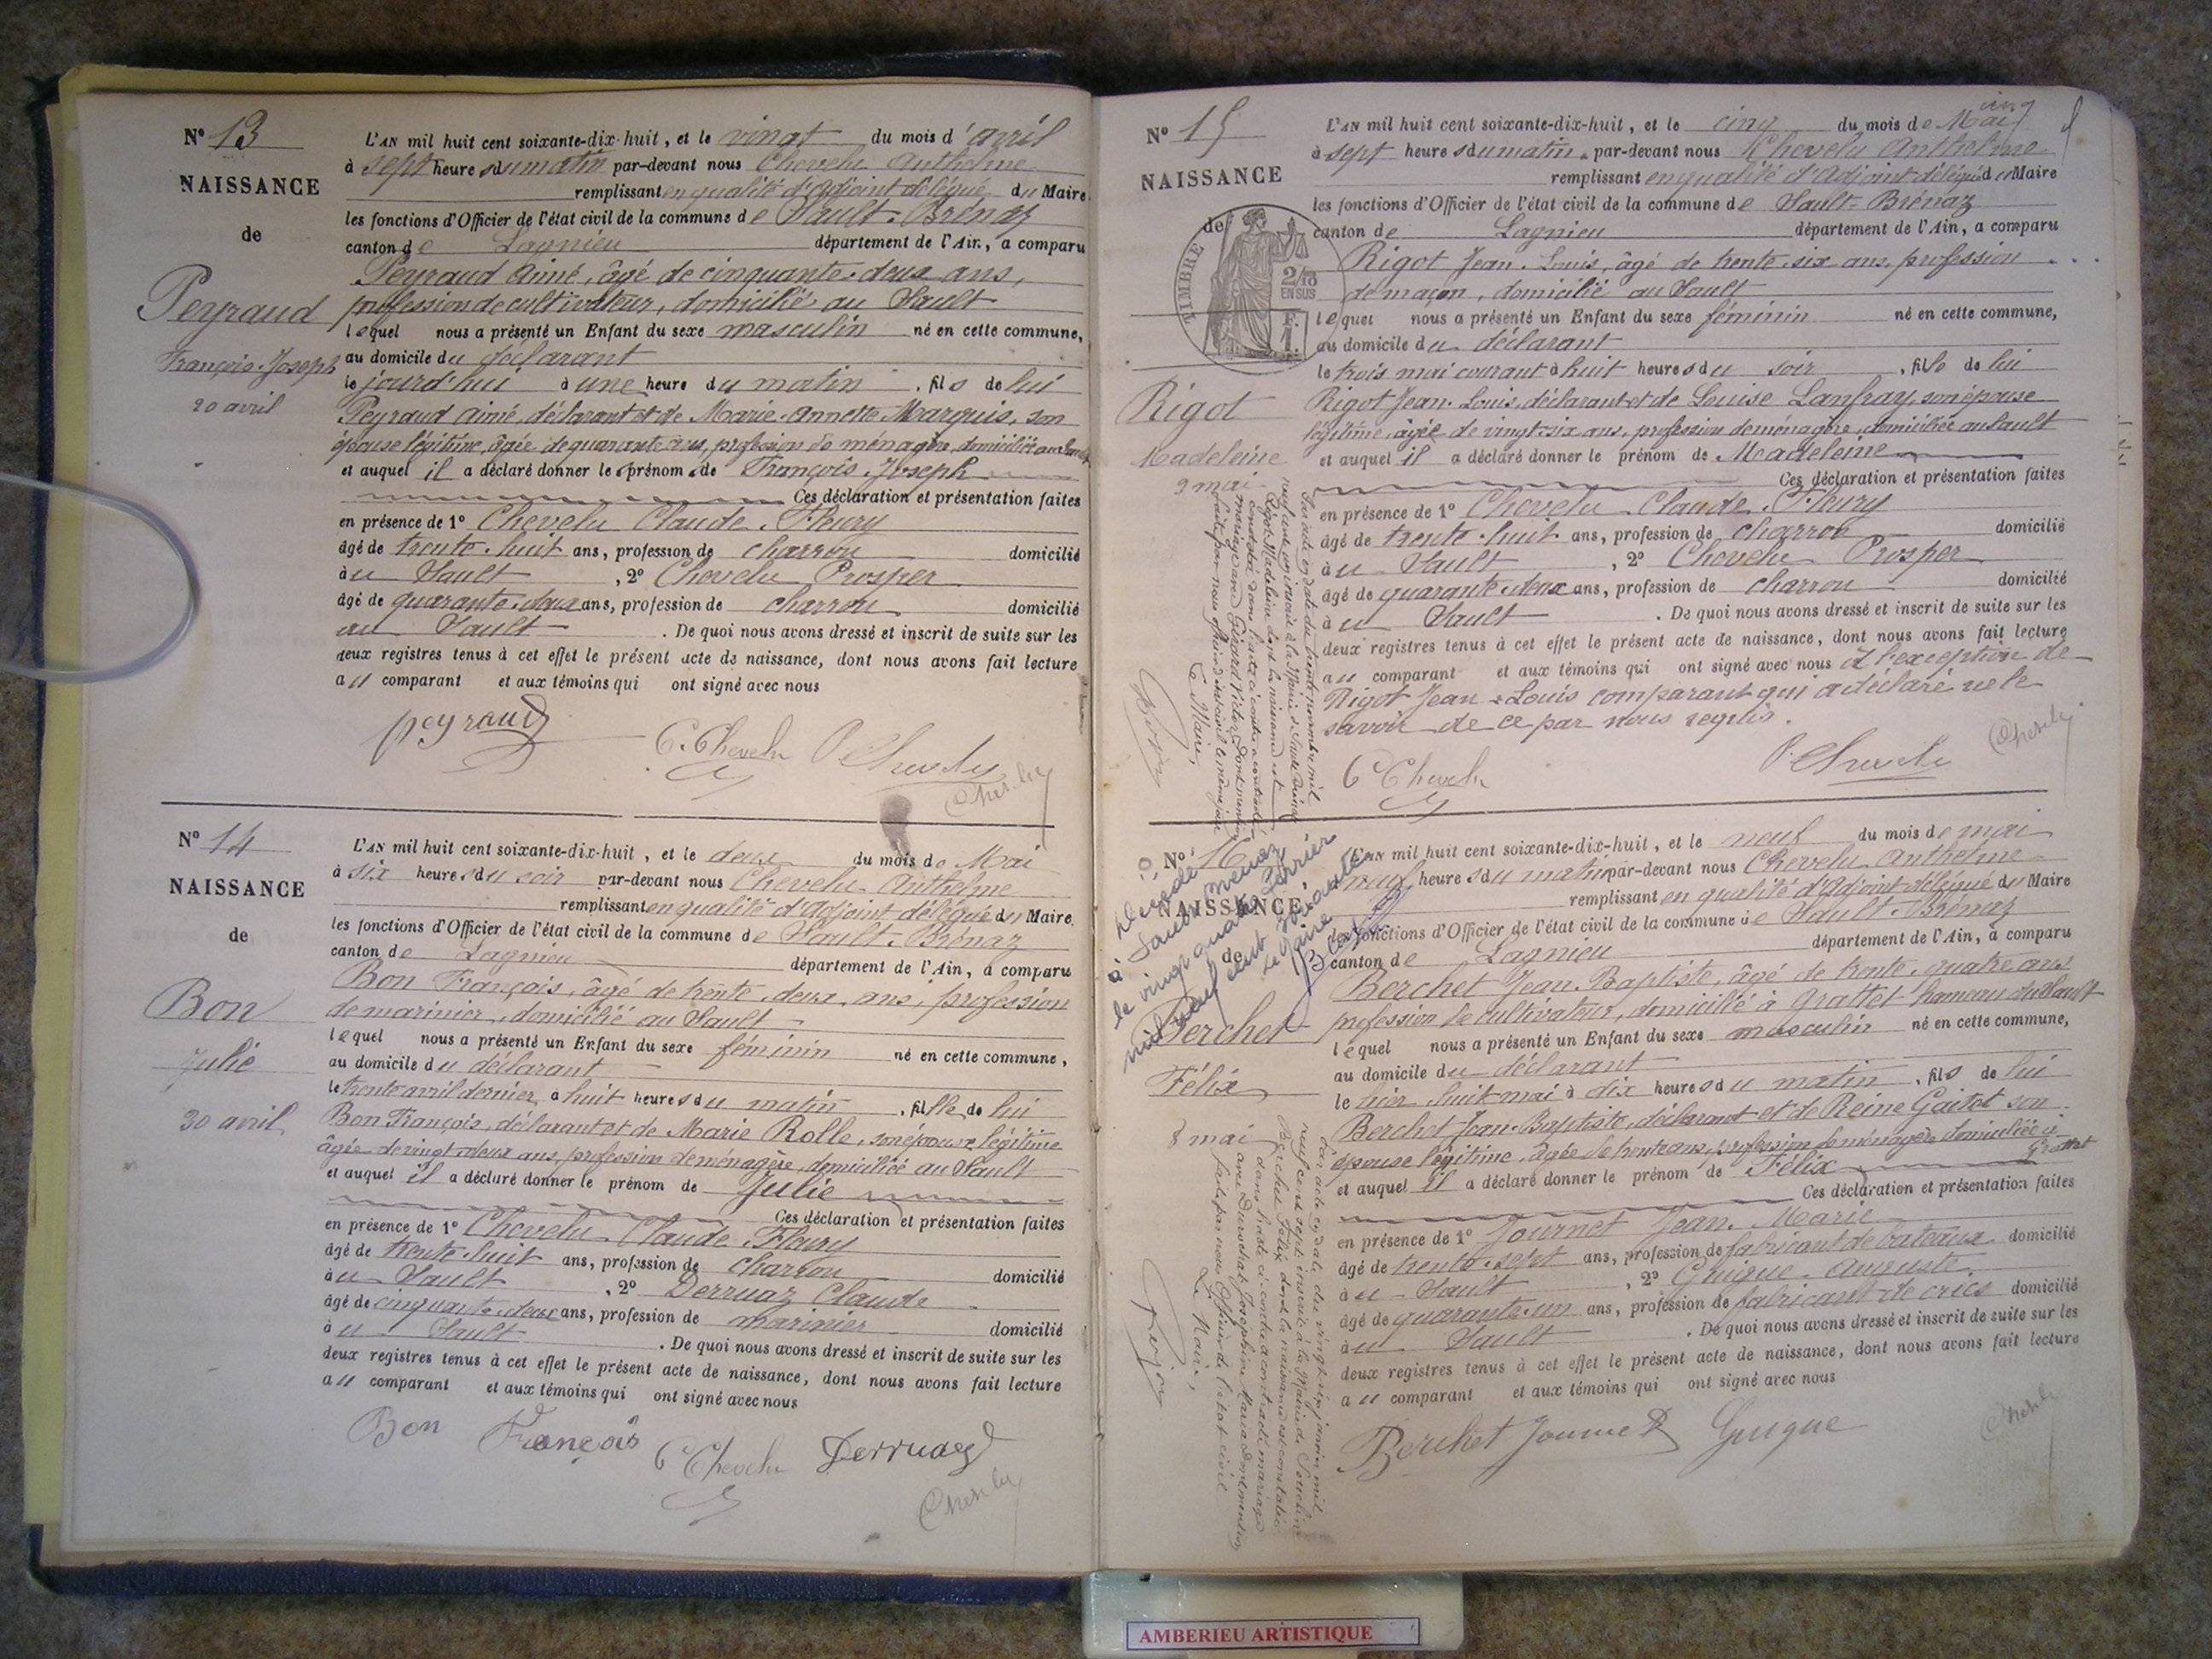 N° 13
NAISSANCE
de
Peyraud
François-Joseph
20 avril
L'AN mil huit cent soixante-dix-huit, et le vingt du mois d'avril
à sept heures du matin par-devant nous Chevelu Anthelme
remplissant en qualité d'Adjoint délégué du Maire
les fonctions d'Officier de l'état civil de la commune de Sault-Brénaz
canton de Lagnieu département de l'Ain, a comparu
Peyraud Aimé, âgé de cinquante-deux ans,
profession de cultivateur, domicilié au Sault
lequel nous a présenté un Enfant du sexe masculin né en cette commune,
au domicile du déclarant
le jourd'hui à une heure du matin, fils de lui
Peyraud Aimé, déclarant et de Marie-Annette Marquis, son
épouse légitime, âgée de quarante ans, profession de ménagère, domiciliée au Sault
et auquel il a déclaré donner les prénoms de François-Joseph
Ces déclaration et présentation faites
en présence de 1° Chevelu Claude-Fleury
âgé de trente-huit ans, profession de charron domicilié
au Sault, 2° Chevelu Prosper
âgé de quarante-deux ans, profession de charron domicilié
au Sault. De quoi nous avons dressé et inscrit de suite sur les
deux registres tenus à cet effet le présent acte de naissance, dont nous avons fait lecture
au comparant et aux témoins qui ont signé avec nous
peyraud
C. Chevelu P Chevelu
Chevelu
N° 14
NAISSANCE
de
Bon
Julie
30 avril
L'AN mil huit cent soixante-dix-huit, et le deux du mois de Mai
à six heures du soir par-devant nous Chevelu Anthelme
remplissant en qualité d'Adjoint délégué du Maire
les fonctions d'Officier de l'état civil de la commune de Sault-Brénaz
canton de Lagnieu département de l'Ain, a comparu
Bon François, âgé de trente-deux ans, profession
de marinier, domicilié au Sault
lequel nous a présenté un Enfant du sexe féminin né en cette commune,
au domicile du déclarant
le trente avril dernier, à huit heures du matin, fille de lui
Bon François, déclarant et de Marie Rolle, son épouse légitime
âgée de vingt-deux ans, profession de ménagère, domiciliée au Sault
et auquel il a déclaré donner le prénom de Julie
Ces déclaration et présentation faites
en présence de 1° Chevelu Claude-Fleury
âgé de trente-huit ans, profession de charron
au Sault, domicilié
2° Derruaz Claude
âgé de cinquante-deux ans, profession de marinier domicilié
au Sault. De quoi nous avons dressé et inscrit de suite sur les
deux registres tenus à cet effet le présent acte de naissance, dont nous avons fait lecture
au comparant et aux témoins qui ont signé avec nous
Bon François C Chevelu Derruaz
Chevelu
N° 15
NAISSANCE
de
TIMBRE
2/10
EN SUS
1 F.
Rigot
Madeleine
3 mai
cinq
L'AN mil huit cent soixante-dix-huit, et le cinq du mois de Mai
à sept heures du matin par-devant nous Chevelu Anthelme
remplissant en qualité d'Adjoint délégué du Maire
les fonctions d'Officier de l'état civil de la commune de Sault-Brénaz
canton de Lagnieu département de l'Ain, a comparu
Rigot Jean-Louis, âgé de trente-six ans, profession
de maçon, domicilié au Sault
lequel nous a présenté un Enfant du sexe féminin né en cette commune,
au domicile du déclarant
le trois mai courant à huit heures du soir, fille de lui
Rigot Jean-Louis, déclarant et de Louise Lanfray, son épouse
légitime, âgée de vingt-six ans, profession de ménagère, domiciliée au Sault
et auquel il a déclaré donner le prénom de Madeleine
Ces déclaration et présentation faites
en présence de 1° Chevelu Claude-Fleury
âgé de trente-huit ans, profession de charron domicilié
au Sault, 2° Chevelu Prosper
âgé de quarante-deux ans, profession de charron domicilié
au Sault. De quoi nous avons dressé et inscrit de suite sur les
deux registres tenus à cet effet le présent acte de naissance, dont nous avons fait lecture
au comparant et aux témoins qui ont signé avec nous à l'exception de
Rigot Jean-Louis comparant qui a déclaré ne le
savoir de ce par nous requis.
C Chevelu P Chevelu
Chevelu
Le Maire,
N° 16
NAISSANCE
de
Berchet
Félix
8 mai
Décédé
à Sault Brenaz
le vingt quatre Février
mil neuf cent soixante
Le Maire
L'AN mil huit cent soixante-dix-huit, et le neuf du mois de mai
à neuf heures du matin par-devant nous Chevelu Anthelme
remplissant en qualité d'Adjoint délégué du Maire
les fonctions d'Officier de l'état civil de la commune de Sault-Brénaz
canton de Lagnieu département de l'Ain, a comparu
Berchet Jean-Baptiste, âgé de trente-quatre ans
profession de cultivateur, domicilié à Grattet hameau du Sault
lequel nous a présenté un Enfant du sexe masculin né en cette commune,
au domicile du déclarant
le hier, huit mai à dix heures du matin, fils de lui
Berchet Jean-Baptiste, déclarant et de Reine Gaitet son
épouse légitime, âgée de trente ans, profession de ménagère domiciliée à Grattet
et auquel il a déclaré donner le prénom de Félix
Ces déclaration et présentation faites
en présence de 1° Journet Jean-Marie
âgé de trente-sept ans, profession de fabricant de bateaux domicilié
au Sault, 2° Guigue Auguste
âgé de quarante-un ans, profession de fabricant de crics domicilié
au Sault. De quoi nous avons dressé et inscrit de suite sur les
deux registres tenus à cet effet le présent acte de naissance, dont nous avons fait lecture
au comparant et aux témoins qui ont signé avec nous
Berchet Journet Guigue
Chevelu
Le Maire,
AMBERIEU ARTISTIQUE